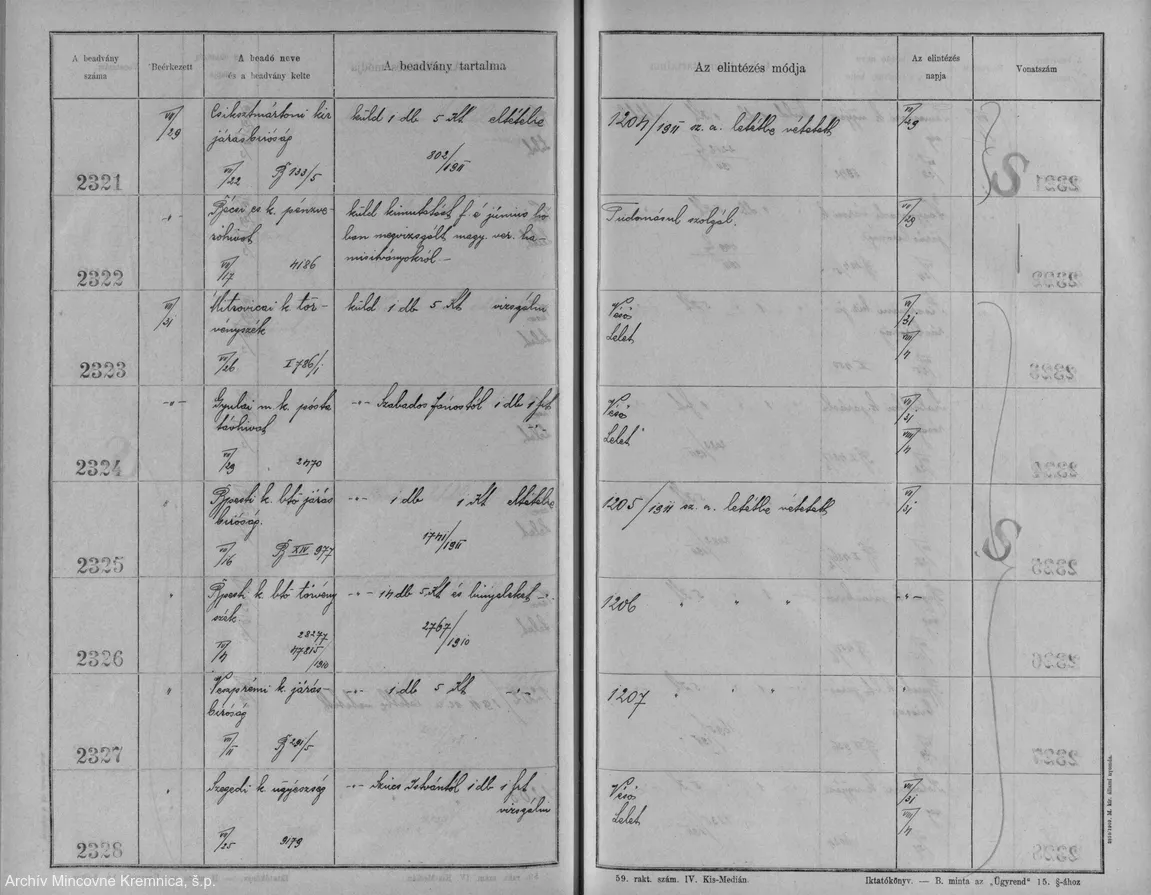 A beadvány száma
Beérkezett
A beadó neve és a beadvány kelte
A beadvány tartalma
Az elintézés módja
Az elintézés napja
Vonatszám
2321
VII/29
Csíksztmártoni kir
járásbíróság
VII/22 B 133/5
küld 1 db 5 Kt eltételre
802/1911
1204/1911 sz. a. letétbe vétetett
VII/29
2322
-"-
Bécsi cs k. pénzve-
rőhivat
VII/17 4186
küld kimutatást f. é június hó-
ban megvizsgált magy. ver. ha-
misitványokról-
Tudomásul szolgál.
VII/29
2323
VII/31
Mitrovicai k tör-
vényszék
VII/26 I 786/1
küld 1 db 5 Kt vizsgálni
Véső
Lelet
VII/31
VIII/4
2324
-"-
Gyulai m. k. pósta
távhivat
VII/29 2470
-"- Szabados Jánostól 1 db 1 frt
Véső
Lelet
VII/31
VIII/4
2325
"
Bpesti k. btő járás
bíróság.
VII/16 B XIV 977
-"- 1 db 1 Kt eltételre
1741/1911
1205/1911 sz. a. letétbe vétetett
VII/31
2326
"
Bpesti k btő törvény
szék.
28277
47815/1910
-"- 14 db 5 Kt és bűnjeleket -"-
2767/1910
1206 " " "
-"-
2327
"
Veszprémi k. járás-
bíróság
VII/11 B 291/5
-"- 1 db 5 Kt -"-
1207 " " "
"
2328
Szegedi k ügyészség
VII/25 9179
-"- Szücs Istvántól 1 db 1 frt
vizsgálni
Véső
Lelet
VII/31
VIII/4
59. rakt. szám. IV. Kis-Medián.
Iktatókönyv. — B. minta az „Ügyrend" 15. §-ához
Archív Mincovne Kremnica, š.p.